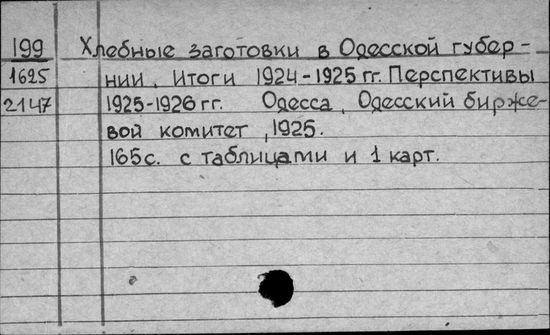 199 Хлебные заготовки в Одесской губер-
1625 нии. Итоги 1924-1925 гг. Перспективы
2147 1925-1926 гг. Одесса, Одесский бирже-
вой комитет, 1925.
165с. с таблицами и 1 карт.